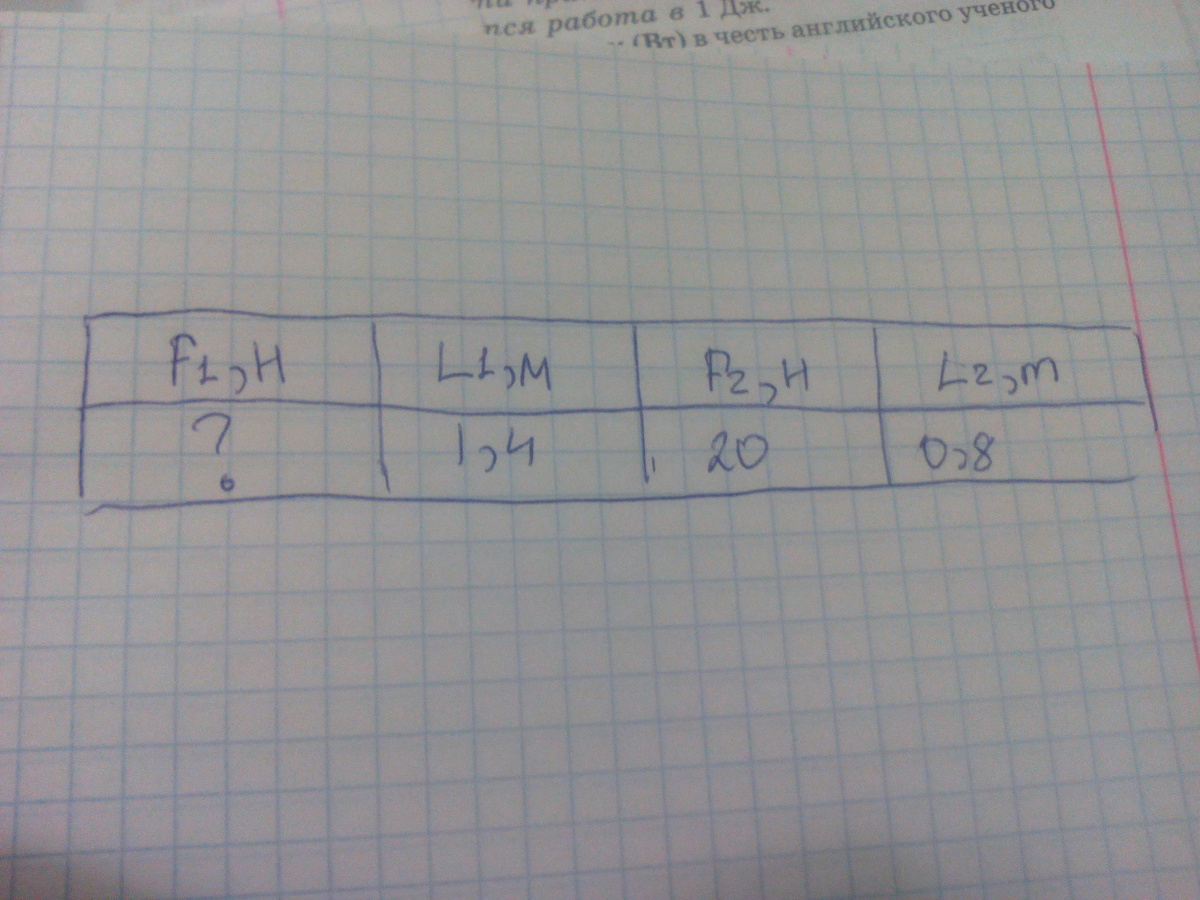 тся работа в 1 Дж.
(Вт) в честь английского ученого
F1,Н L1,М F2,Н L2,m
? 1,4 20 0,8